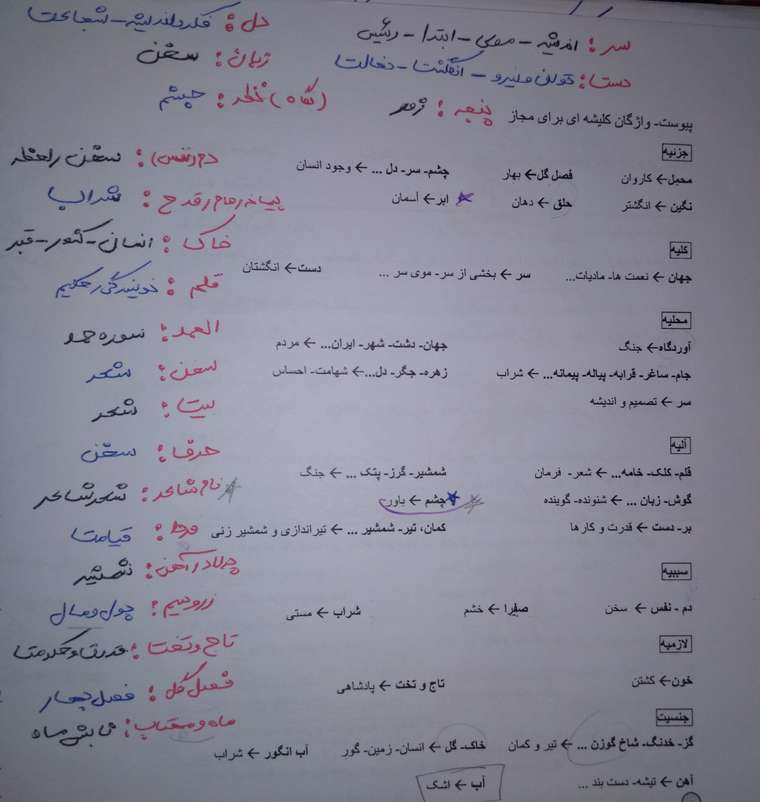 سر: اندیشه - موی - ابتدا - رئیس
دل: فکر و اندیشه - شجاعت
دست: توان و نیرو - انگشت - دخالت
زبان: سخن
پنجه: زور
(نگاه) نظر: چشم
پیوست- واژگان کلیشه ای برای مجاز
جزئیه
محمل← کاروان
فصل گل← بهار
چشم- سر- دل ... ← وجود انسان
نگین ← انگشتر
حلق ← دهان
ابر← آسمان
کلیه
جهان ← نعمت ها- مادیات...
سر ← بخشی از سر- موی سر ...
دست← انگشتان
محلیه
آوردگاه← جنگ
جهان- دشت- شهر- ایران...← مردم
جام- ساغر- قرابه- پیاله- پیمانه...← شراب
زهره- جگر- دل...← شهامت- احساس
سر ← تصمیم و اندیشه
آلیه
قلم- کلک- خامه...← شعر- فرمان
شمشیر- گرز- پتک ... ← جنگ
گوش- زبان ... ← شنونده- گوینده
چشم ← باور
بر- دست ← قدرت و کارها
کمان، تیر- شمشیر ... ← تیراندازی و شمشیر زنی
سببیه
دم - نفس ← سخن
صفرا ← خشم
شراب ← مستی
لازمیه
خون← کشتن
تاج و تخت ← پادشاهی
جنسیت
گز- خدنگ- شاخ گوزن ... ← تیر و کمان
خاک- گل ← انسان- زمین- گور
آب انگور ← شراب
آهن ← تیشه- دست بند ...
آب ← اشک
دم (نفس): سخن، لحظه
پیمانه، جام، قدح: شراب
خاک: انسان - کشور - قبر
قلم: نویسندگی
الحمد: سوره حمد
سخن: شعر
بیت: شعر
حرف: سخن
نام شاعر: شعر شاعر
فردا: قیامت
پولاد، آهن: شمشیر
زر و سیم: پول و مال
تاج و تخت: قدرت و حکومت
فصل گل: فصل بهار
ماه و مهتاب: تابش ماه